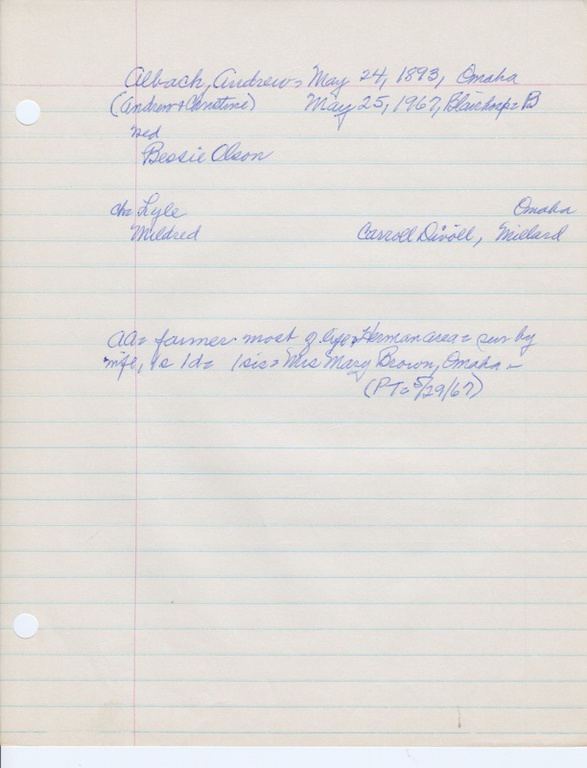 Albach, Andrew= May 24, 1893, Omaha
(Andrew + Christine) May 25, 1967, Blairhosp= B
wed
Bessie Olson
ch= Lyle Omaha
Mildred Carroll Divoll, Millard
AA= farmer most of life= Herman area= sur by
wife, 1s 1d= 1sis= Mrs Mary Brown, Omaha -
(PT= 5/29/67)